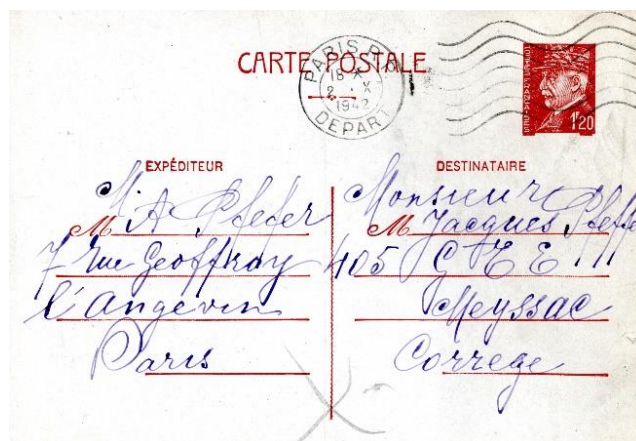 CARTE POSTALE
PARIS R.P.
18
2 X
1942
DEPART
1F20
EXPÉDITEUR
M. A Pfefer
7 rue Geoffroy
l'Angevin
Paris
DESTINATAIRE
Monsieur
M Jacques
405 G T E
Meyssac
Correge